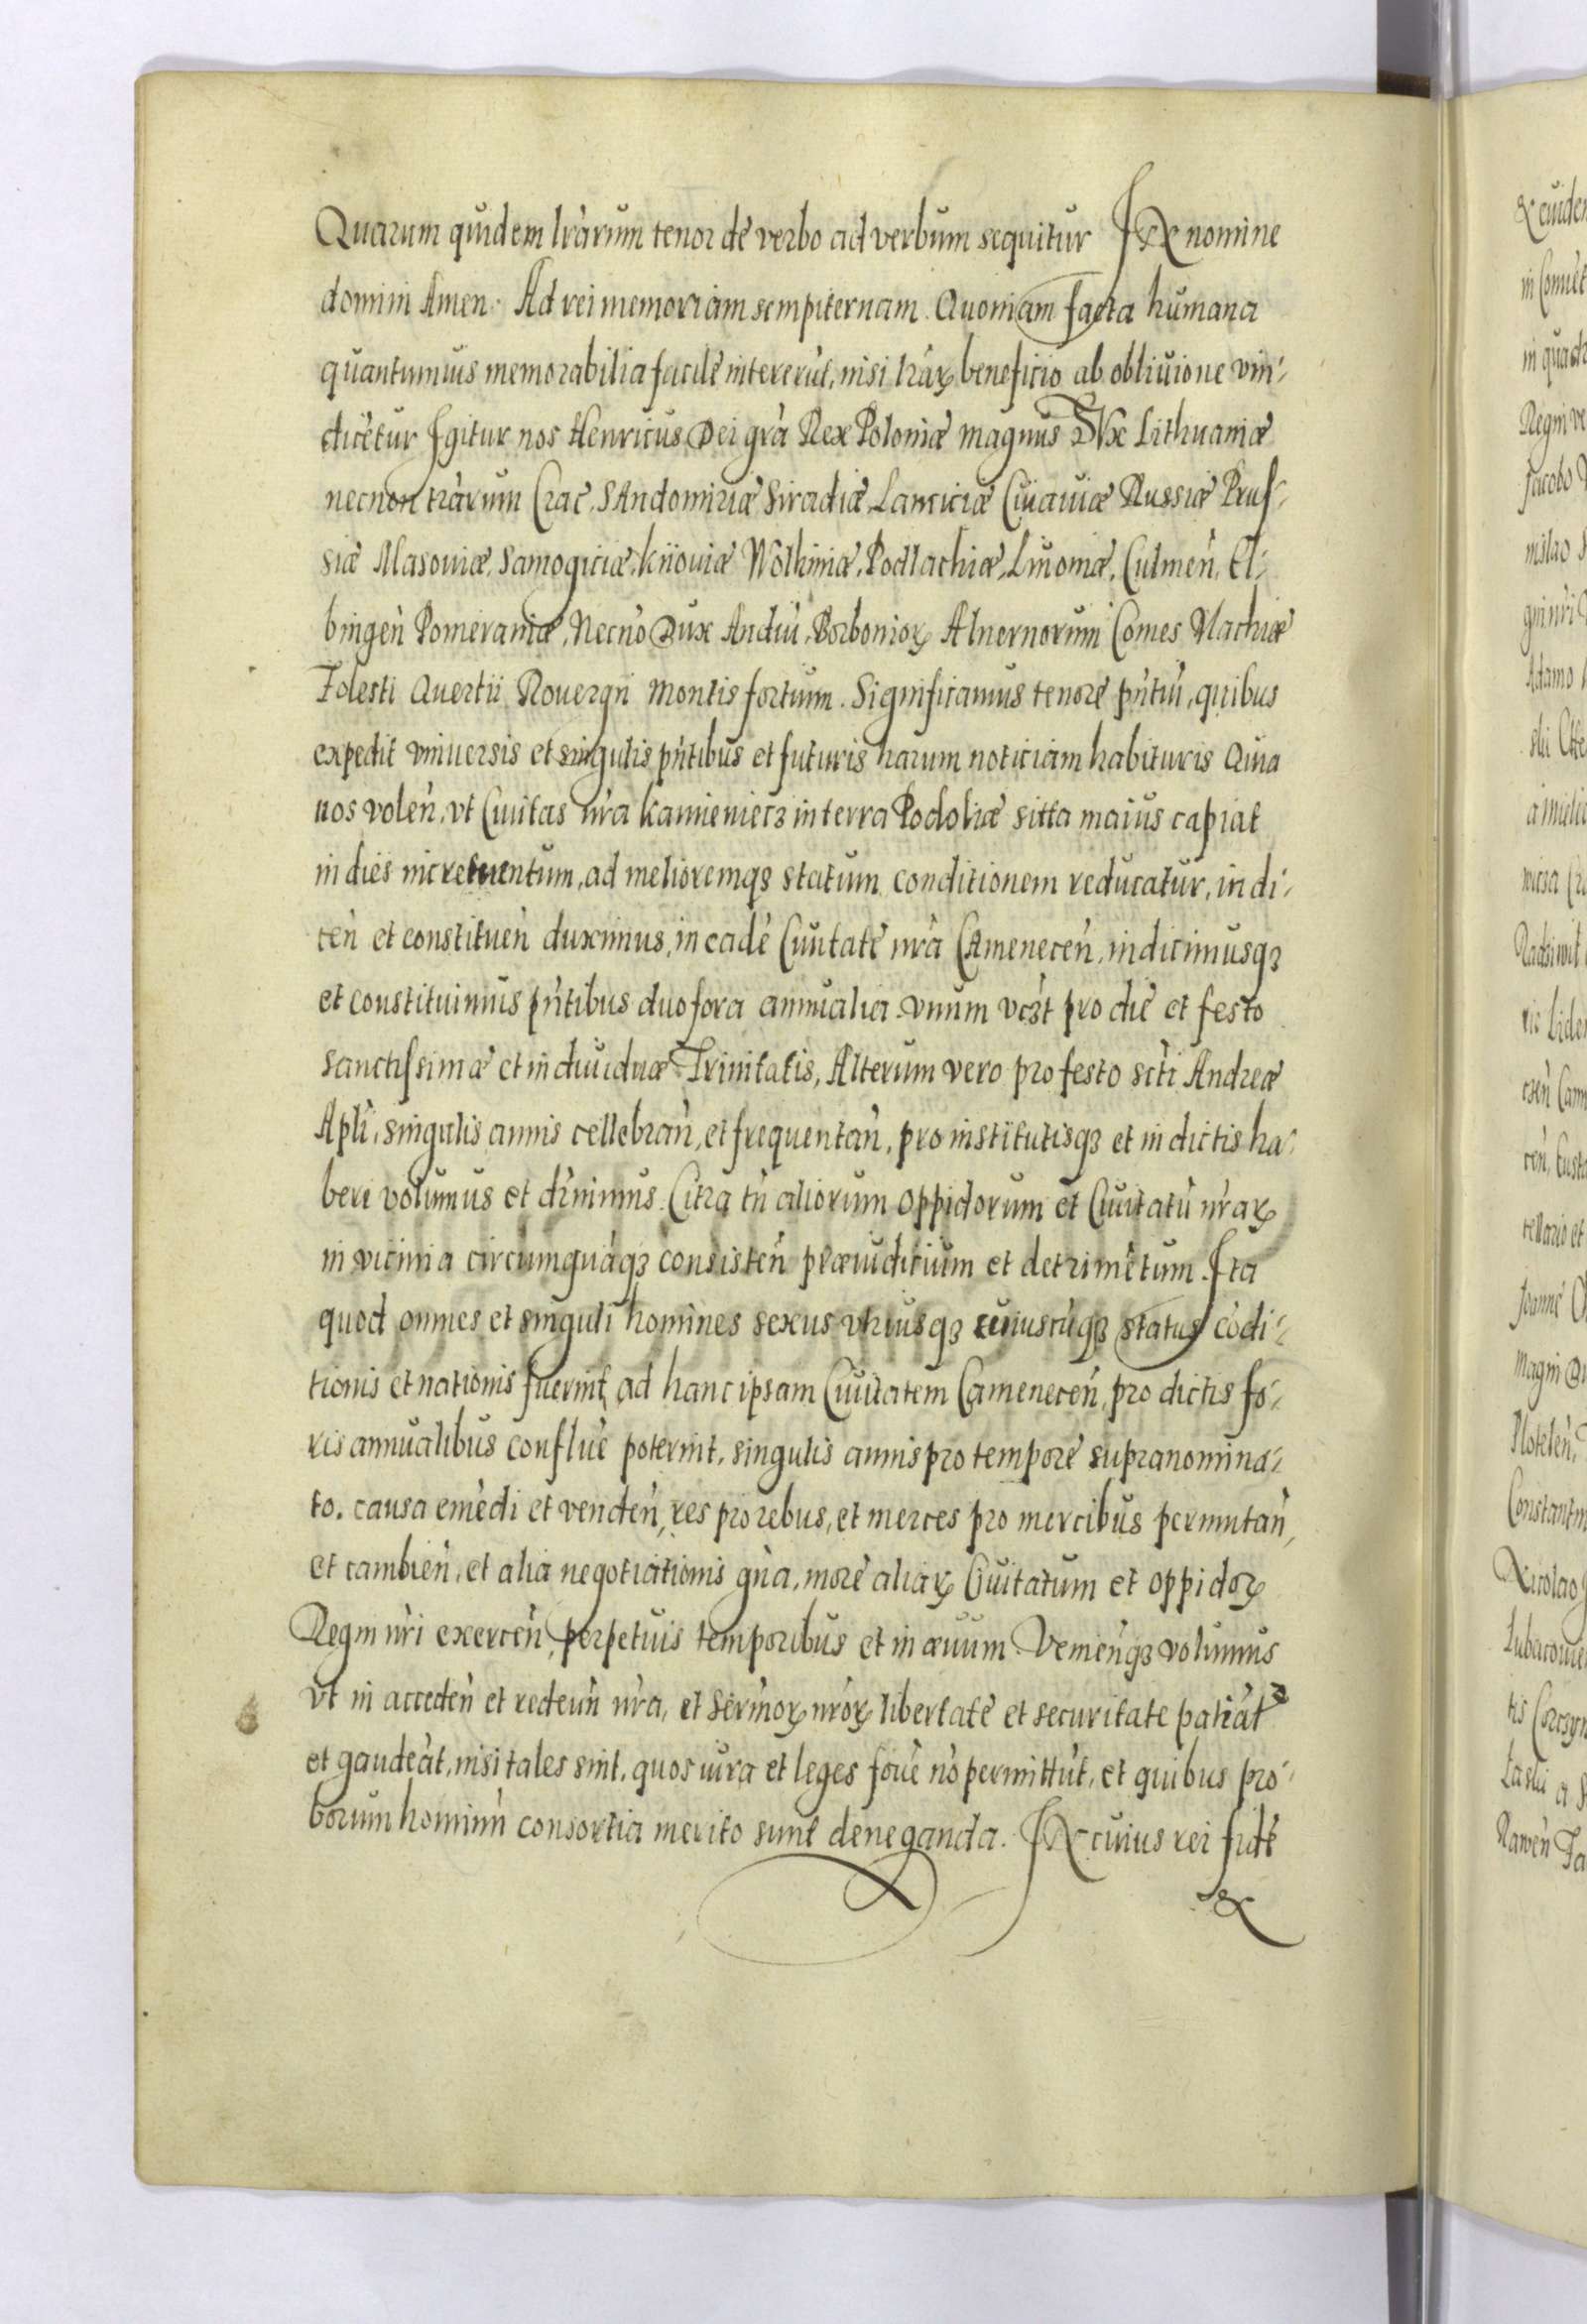 Quarum quidem lrarum tenor de verbo ad verbum sequitur IN nomine
domini Amen. Ad rei memoriam sempiternam. Quoniam facta humana
quantumuis memorabilia facile intererut, nisi lrarꝝ beneficio ab obliuione vin-
dicetur Igitur nos Henricus Dei gra Rex Poloniæ magnus DVx Lithuaniæ
necnon trarum Crac. SAndomiriæ Siradiæ, Lanciciæ Cuiauiæ Russiæ Prus-
siæ Masouiæ, Samogiciæ, Kiiouiæ Wolhiniæ, Podlachiæ, Liuoniæ, Culmen̄, El-
bingen̄ Pomeraniæ, Necno Dux Andiu, Borboniorꝝ Alnernorum Comes Machiæ
Folesti Quertii Rouergii Montis fortium. Significamus tenore pn̄tiū, quibus
expedit vniuersis et singulis pn̄tibus et futuris harum noticiam habituris Quia
nos volen̄, vt Ciuitas nr̄a Kamieniecz in terra Podoliæ sitta maius capiat
in dies incrementum, ad melioremqꝫ statum conditionem reducatur, indi-
cen̄ et constituen̄ duximus, in eadē Ciuitatē nr̄a CAmenecen̄, indicimusqꝫ
et constituimus pn̄tibus duo fora annualia. vnum vczt pro die et festo
sanctissimæ et indiuiduæ Trinitatis, Alterum vero pro festo scti Andreæ
Apli, singulis annis cellebran̄, et frequentan̄, pro institutisqꝫ et indictis ha-
beri volumus et dn̄imus. Citra tn̄ aliorum oppidorum et Ciuitatū nr̄arꝝ
in vicinia circumquaqꝫ consisten̄ præiuditium et detrimētum. Ita
quod omnes et singuli homines sexus vtriusqꝫ cuiuscūqꝫ status cōdi-
tionis et nationis fuerint, ad hanc ipsam Ciuitatem Camenecen̄, pro dictis fo-
ris annualibus confluē poterint, singulis annis pro tempore supranomina-
to. causa emēdi et venden̄, res pro rebus, et merces pro mercibus permutan̄,
et cambien̄, et alia negotiationis gn̄a, more aliarꝝ Ciuitatum et oppidorꝝ
Regni nr̄i exercen̄, perpetuis temporibus et in æuum. Venien̄qꝫ volumus
vt in acceden̄ et redeun̄ nr̄a, et Serm̄orꝝ nr̄orꝝ libertatē et securitate patiāt
et gaudeāt, nisi tales sint, quos iura et leges fouē nō permittūt, et quibus pro-
borum hominū consortia merito sunt deneganda. IN cuius rei fidē
&